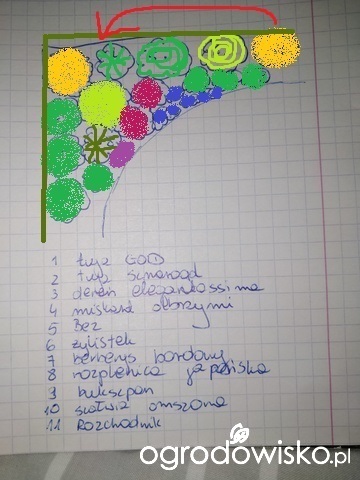 1 tuja GOLD
2 tuja szmaragd
3 dereń elegantissima
4 miskant olbrzymi
5 Bez
6 żylistek
7 berberys bordowy
8 rozplenica japońska
9 bukszpan
10 szałwia omszona
11 Rozchodnik
ogrodowisko.pl